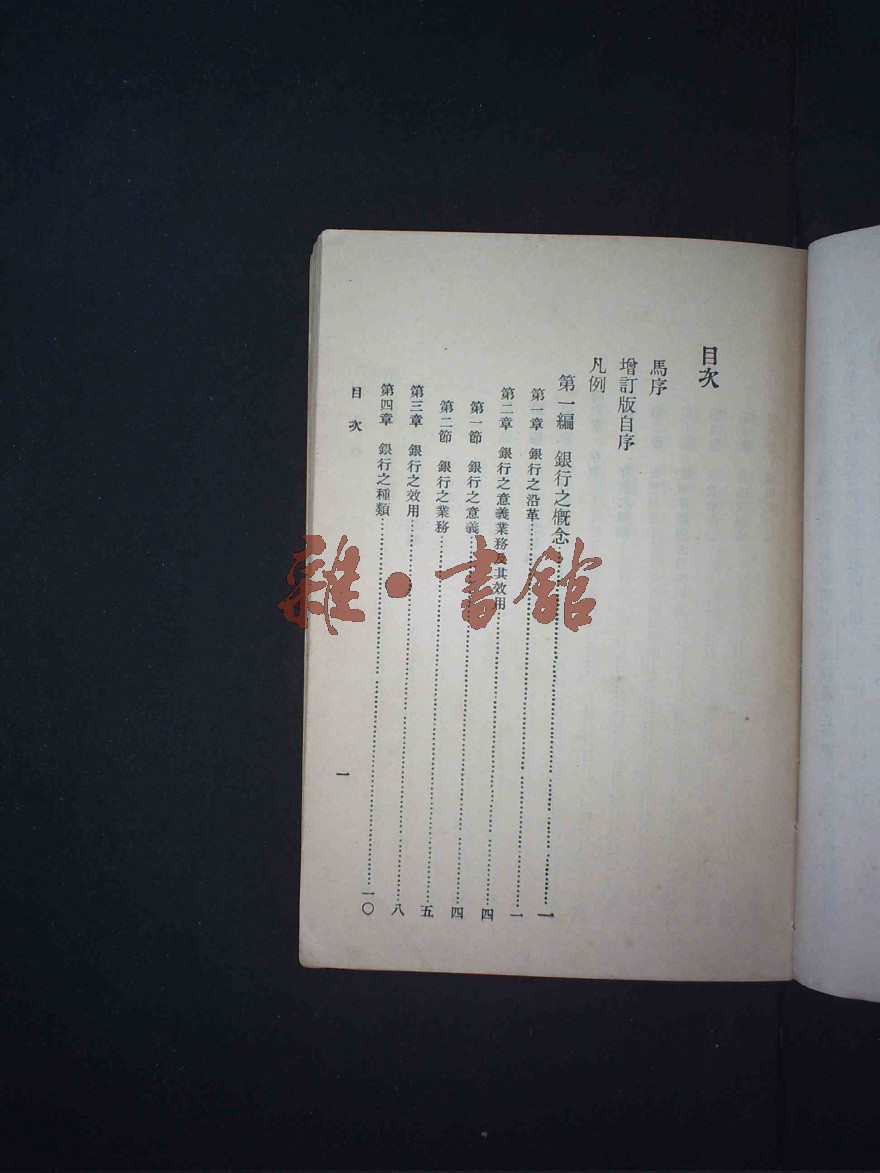 目次
馬序
增訂版自序
凡例
第一編 銀行之概念……一
第一章 銀行之沿革……一
第二章 銀行之意義業務及其效用……四
第一節 銀行之意義……四
第二節 銀行之業務……五
第三章 銀行之效用……八
第四章 銀行之種類……一〇
目次
一
雜·書館